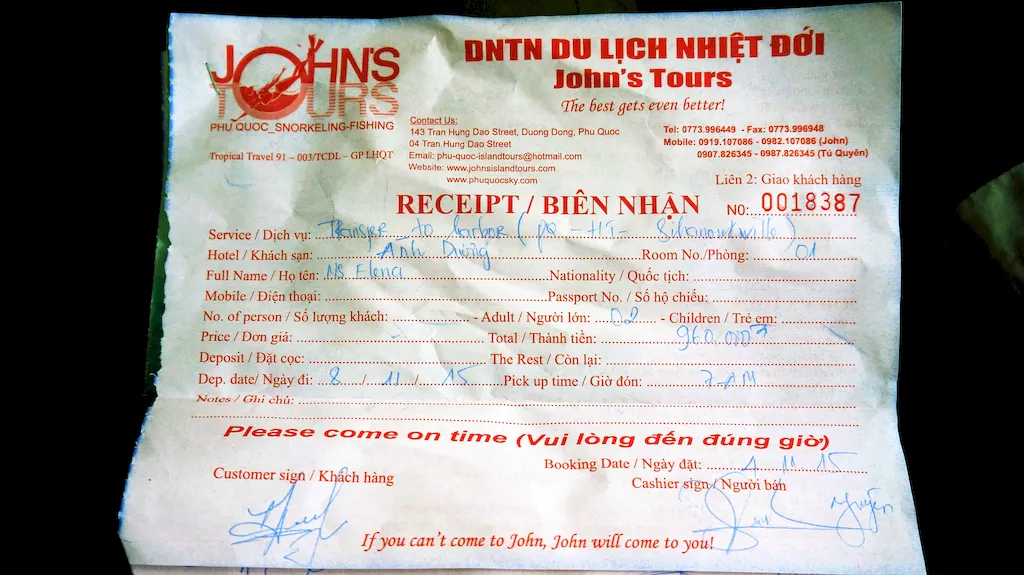 JOHN'S
TOURS
PHU QUOC_SNORKELING-FISHING
Tropical Travel 91 – 003/TCDL – GP LHQT
DNTN DU LỊCH NHIỆT ĐỚI
John's Tours
The best gets even better!
Contact Us:
143 Tran Hung Dao Street, Duong Dong, Phu Quoc
04 Tran Hung Dao Street
Email: phu-quoc-islandtours@hotmail.com
Website: www.johnsislandtours.com
www.phuquocsky.com
Tel: 0773.996449 - Fax: 0773.996948
Mobile: 0919.107086 - 0982.107086 (John)
0907.826345 - 0987.826345 (Tú Quyên)
Liên 2: Giao khách hàng
RECEIPT / BIÊN NHẬN N0: 0018387
Service / Dịch vụ: Transfer to harbor (PQ - HT - Sihanoukville)
Hotel / Khách sạn: Ánh Dương Room No./Phòng: 01
Full Name / Họ tên: MS Elena Nationality / Quốc tịch:
Mobile / Điện thoại: Passport No. / Số hộ chiếu:
No. of person / Số lượng khách: - Adult / Người lớn: 02 - Children / Trẻ em:
Price / Đơn giá: Total / Thành tiền: 960.000đ
Deposit / Đặt cọc: The Rest / Còn lại:
Dep. date/ Ngày đi: 8 / 11 / 15 Pick up time / Giờ đón: 7 AM
Notes / Ghi chú:
Please come on time (Vui lòng đến đúng giờ)
Booking Date / Ngày đặt: 4 11 15
Customer sign / Khách hàng Cashier sign / Người bán
Nguyễn
If you can't come to John, John will come to you!